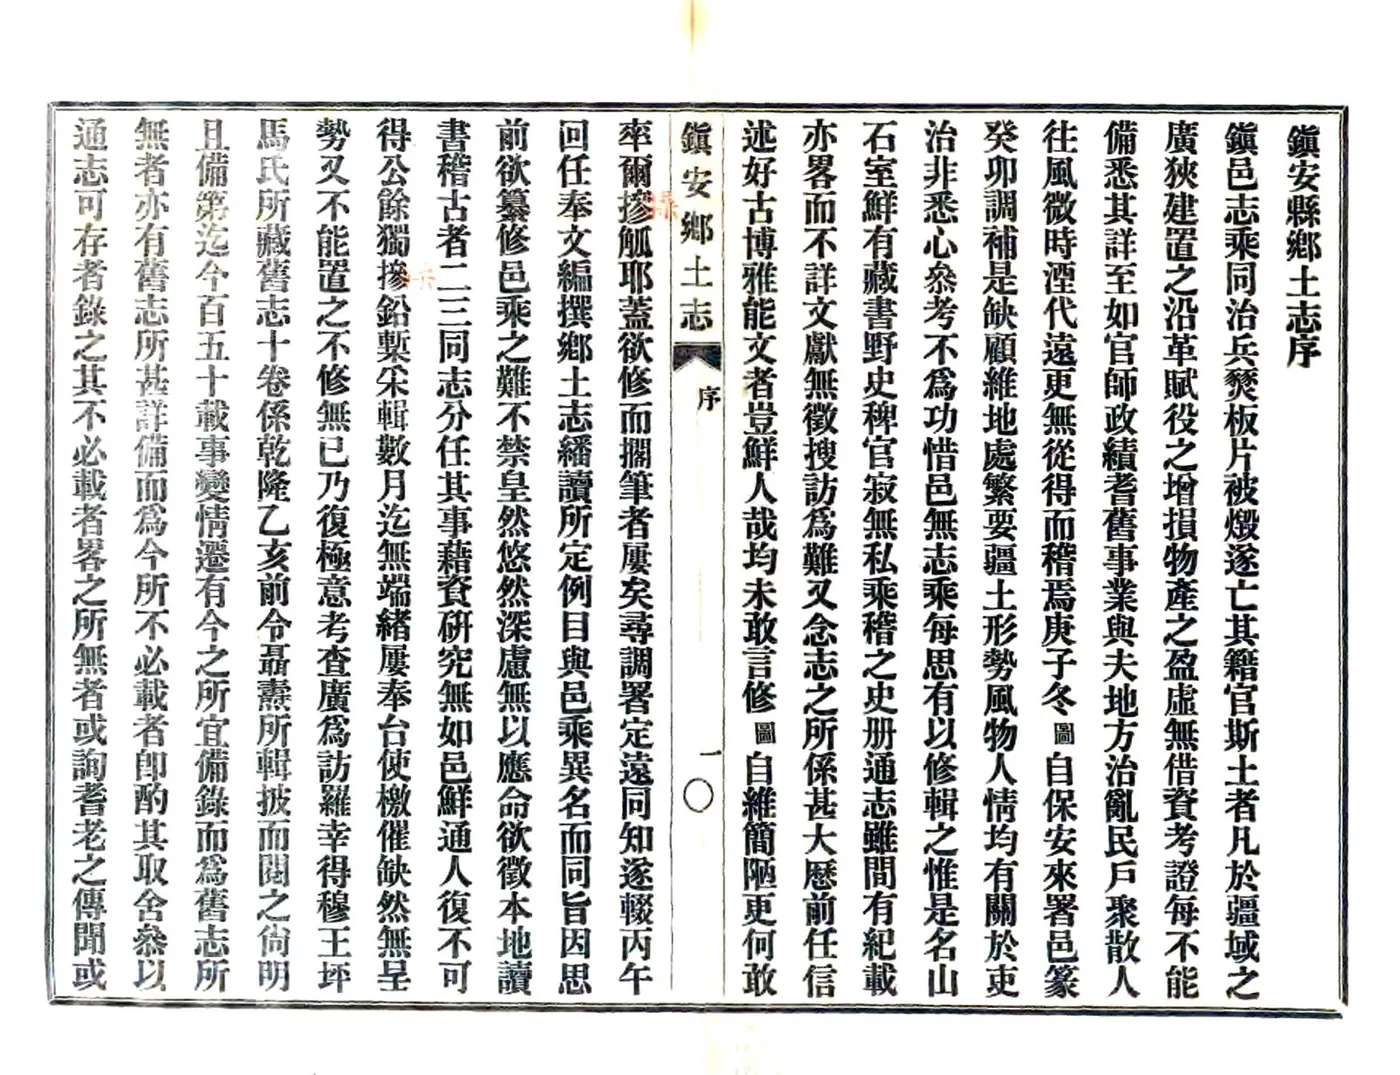 鎭安縣鄉土志序
鎭邑志乘同治兵燹板片被燬遂亡其籍官斯土者凡於疆域之
廣狹建置之沿革賦役之增損物產之盈虛無借資考證每不能
備悉其詳至如官師政績耆舊事業與夫地方治亂民戶聚散人
往風微時湮代遠更無從得而稽焉庚子冬圖自保安來署邑篆
癸卯調補是缺顧維地處繁要疆土形勢風物人情均有關於吏
治非悉心叅考不爲功惜邑無志乘每思有以修輯之惟是名山
石室鮮有藏書野史稗官寂無私乘稽之史册通志雖間有紀載
亦畧而不詳文獻無徵搜訪爲難又念志之所係甚大歷前任信
述好古博雅能文者豈鮮人哉均未敢言修圖自維簡陋更何敢
鎭安鄉土志
序
一
率爾摻觚耶蓋欲修而擱筆者屢矣尋調署定遠同知遂輟丙午
回任奉文編撰鄉土志繙讀所定例目與邑乘異名而同旨因思
前欲纂修邑乘之難不禁皇然悠然深慮無以應命欲徵本地讀
書稽古者二三同志分任其事藉資硏究無如邑鮮通人復不可
得公餘獨摻鉛槧采輯數月迄無端緒屢奉台使檄催缺然無呈
勢又不能置之不修無已乃復極意考查廣爲訪羅幸得穆王坪
馬氏所藏舊志十卷係乾隆乙亥前令聶燾所輯披而閱之尙明
且備第迄今百五十載事變情遷有今之所宜備錄而爲舊志所
無者亦有舊志所甚詳備而爲今所不必載者卽酌其取舍叅以
通志可存者錄之其不必載者畧之所無者或詢耆老之傳聞或